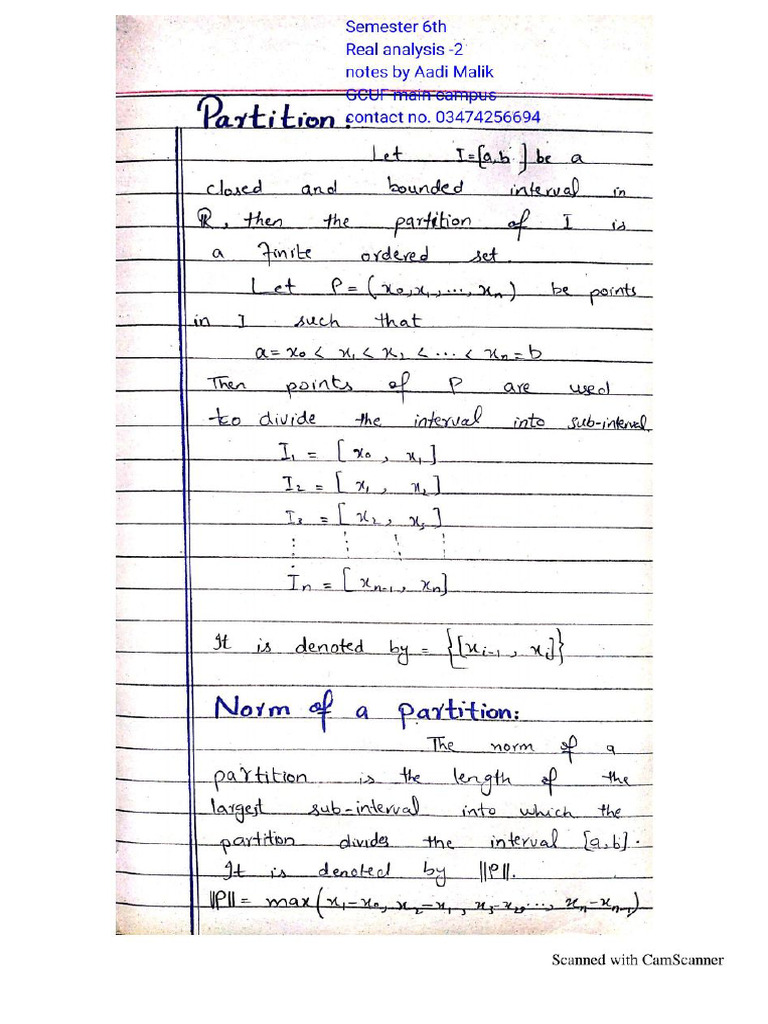 Semester 6th
Real analysis -2
notes by Aadi Malik
GCUF main campus
contact no. 03474256694
Partition:
Let I=[a,b] be a
closed and bounded interval in
ℝ, then the partition of I is
a finite ordered set.
Let P=(x₀,x₁,...,xₙ) be points
in I such that
a=x₀<x₁<x₂<...<xₙ=b
Then points of P are used
to divide the interval into sub-interval
I₁ = [x₀, x₁]
I₂ = [x₁, x₂]
I₃ = [x₂, x₃]
⋮ ⋮ ⋮ ⋮
Iₙ = [xₙ₋₁, xₙ]
It is denoted by = {[xᵢ₋₁, xᵢ]}
Norm of a partition:
The norm of a
partition is the length of the
largest sub-interval into which the
partition divides the interval [a,b].
It is denoted by ||P||.
||P|| = max(x₁-x₀, x₂-x₁, x₃-x₂, ..., xₙ-xₙ₋₁)
Scanned with CamScanner